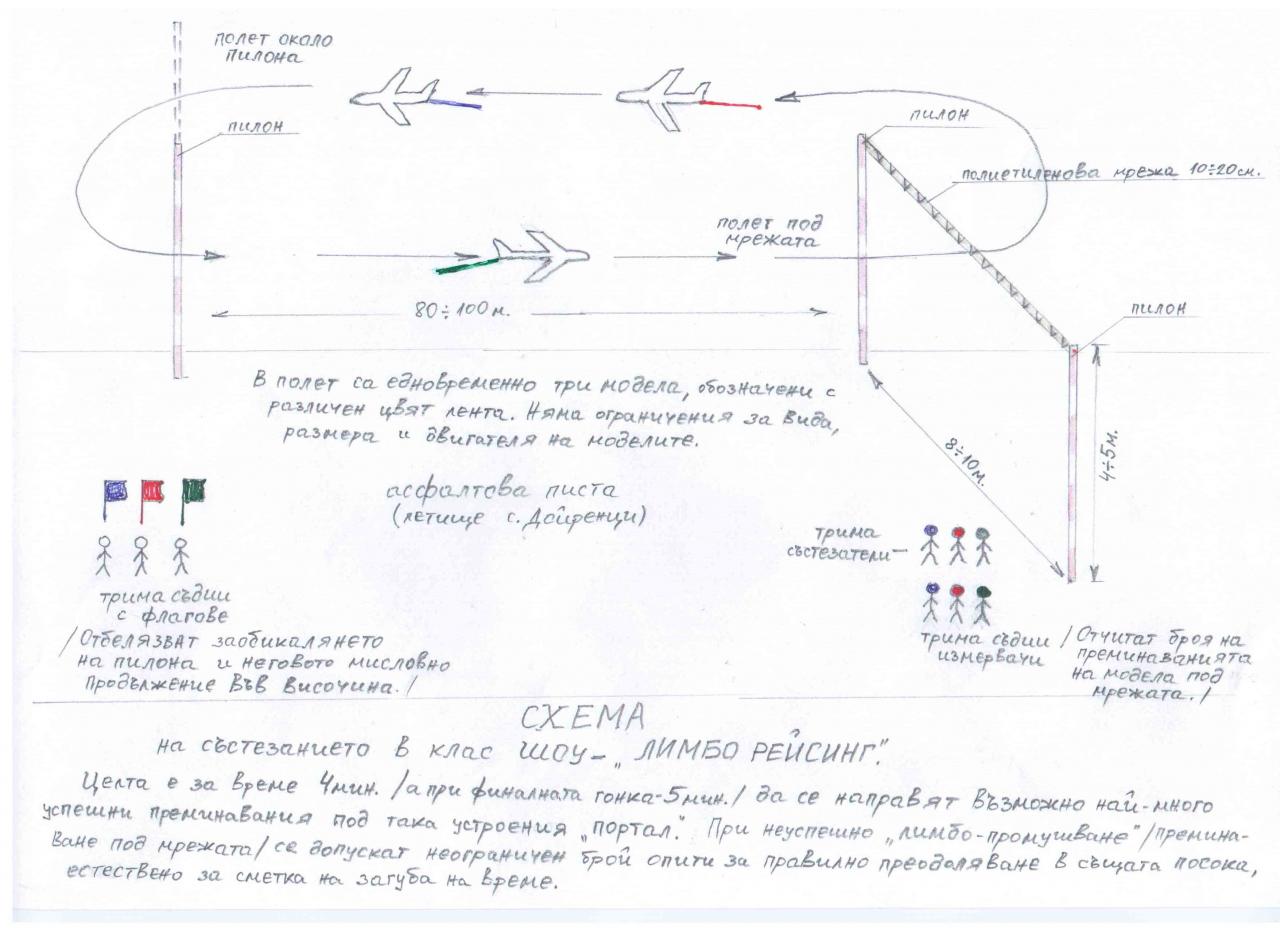 полет около
пилона
пилон
пилон
полиетиленова мрежа 10÷20см.
полет под
мрежата
80÷100м.
пилон
В полет са едновременно три модела, обозначени с
различен цвят лента. Няма ограничения за вида,
размера и двигателя на моделите.
8÷10м.
4÷5м.
асфалтова писта
(летище с. Дойренци)
трима
състезатели
трима съдии
с флагове
/Отбелязват заобикалянето
на пилона и неговото мисловно
продължение във височина./
трима съдии
измервачи
/Отчитат броя на
преминаванията
на модела под
мрежата./
СХЕМА
на състезанието в клас ШОУ-„ЛИМБО РЕЙСИНГ".
Целта е за време 4мин. /а при финалната гонка-5мин./ да се направят възможно най-много
успешни преминавания под така устроения „портал". При неуспешно „лимбо-промушване"/премина-
ване под мрежата/ се допускат неограничен брой опити за правилно преодоляване в същата посока,
естествено за сметка на загуба на време.